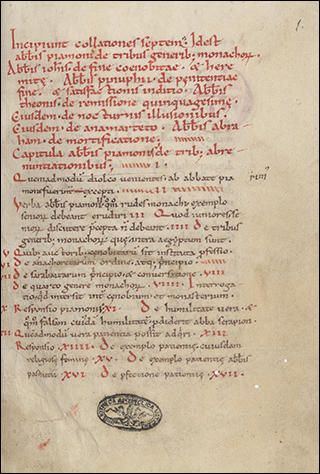 1.
Incipiunt collationes septem. Idest
abbis piamoni de tribus generib; monachor.
Abbis iohis de fine coenobitae. & here
mite. Abbis pinuphii de penitentiae
fine. & satisfactionis inditio. Abbis
theonis. de remissione quinquagesime.
Eiusdem. de nocturnis illusionibus.
Eiusdem. de anamarteto. Abbis abra
ham. de mortificatione.
Capitula abbis piamonis. de trib; abre
nuntiationibus. I
Quemadmodu diolco venientes. ab abbate pia
mone fuerint excepti. II
Verba abbis piamonis. qm rudes monachi exemplo
senior debeant erudiri. III Quod iuniores se
nior discutere pcepta n debeant. IIII De tribus
generib; monachor. que intra aegyptum sunt.
V Quib; auctorib; coenobitaru sit instituta pfessio.
VI De anachoretarum ordine. atq; principio.
De sarabaitarum principio. & conversatione. VIII
De quarto genere monachor. VIIII Interroga
tio. qd intersit int coenobium. et monasterium.
X Responsio piamonis. XI De humilitate vera. &
qm falsam cuiusda humilitate. pdiderit abba serapion.
Quemadmodu vera patientia possit adqri. XIII
Responsio. XIIII De exemplo patientie. cuiusdam
religiose femine. XV De exemplo patientie abbis
pafnutii. XVI De pfectione patientie. XVII